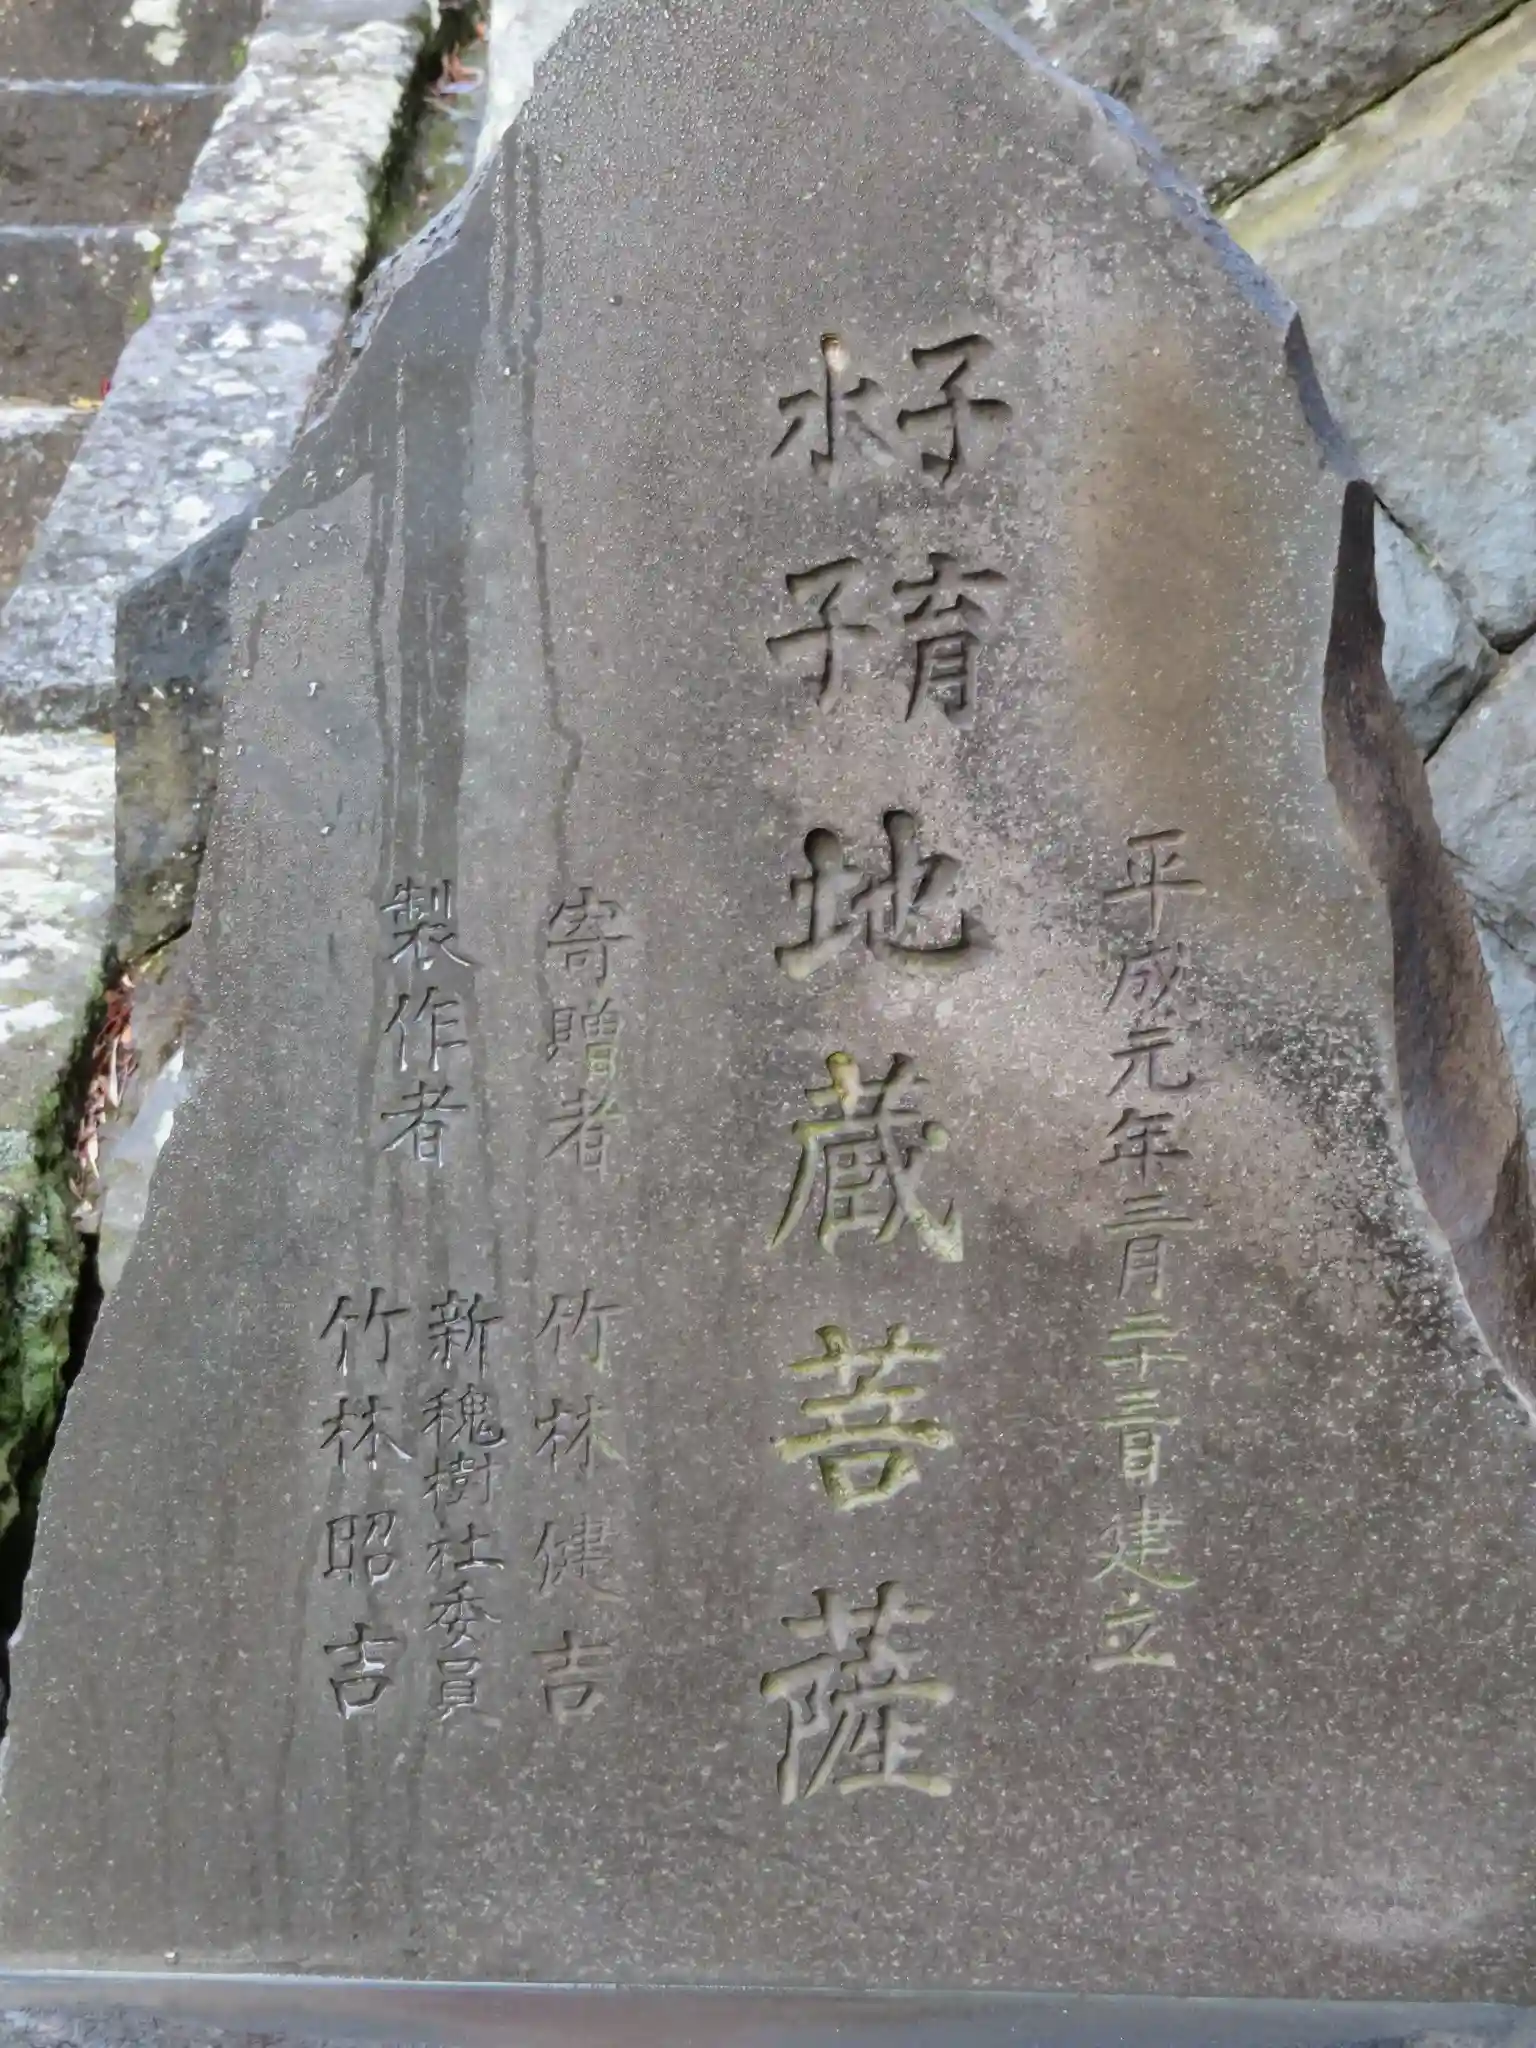 平成元年三月二十三日建立
子育
水子
地蔵菩薩
寄贈者 竹林健吉
製作者 新槐樹社委員
竹林昭吉